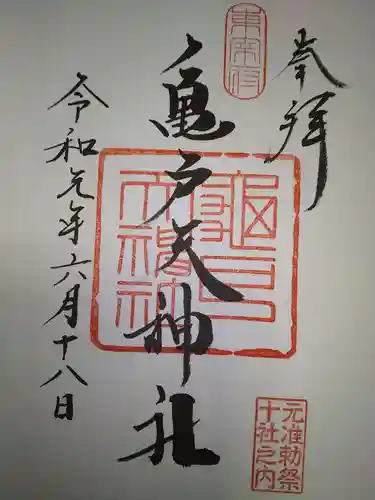 奉拝
東宰府
亀戸天神社
亀戸天神社
令和元年六月十八日
元准勅祭
十社之内